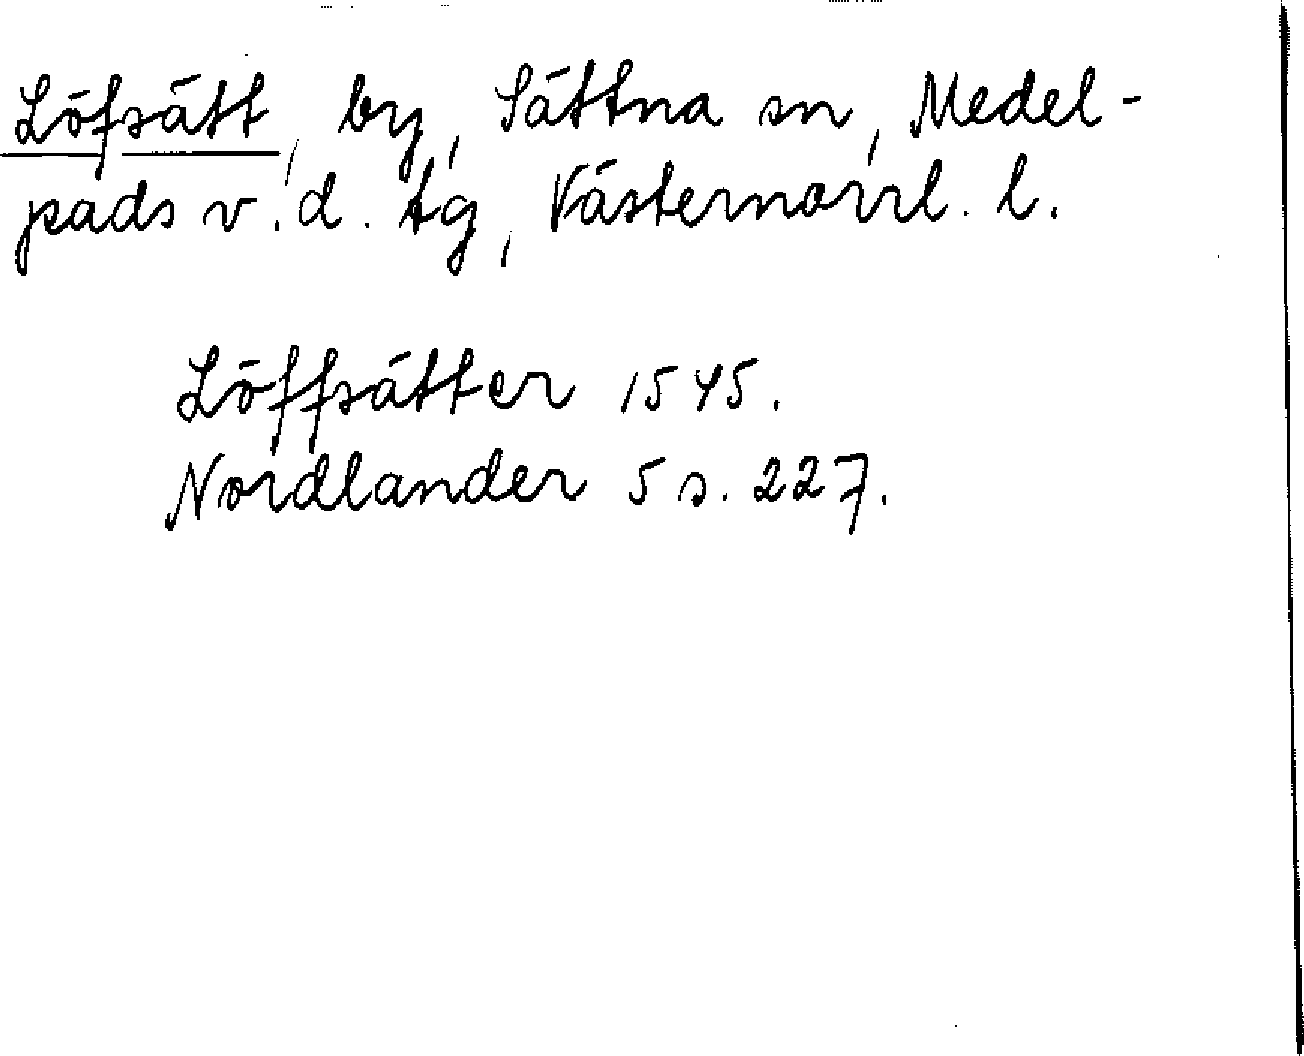 Löfsätt, by, Sättna sn, Medel-
pads v. d. tg, Västernorrl. l.
Löffsätter 1545.
Nordlander 5 s. 227.